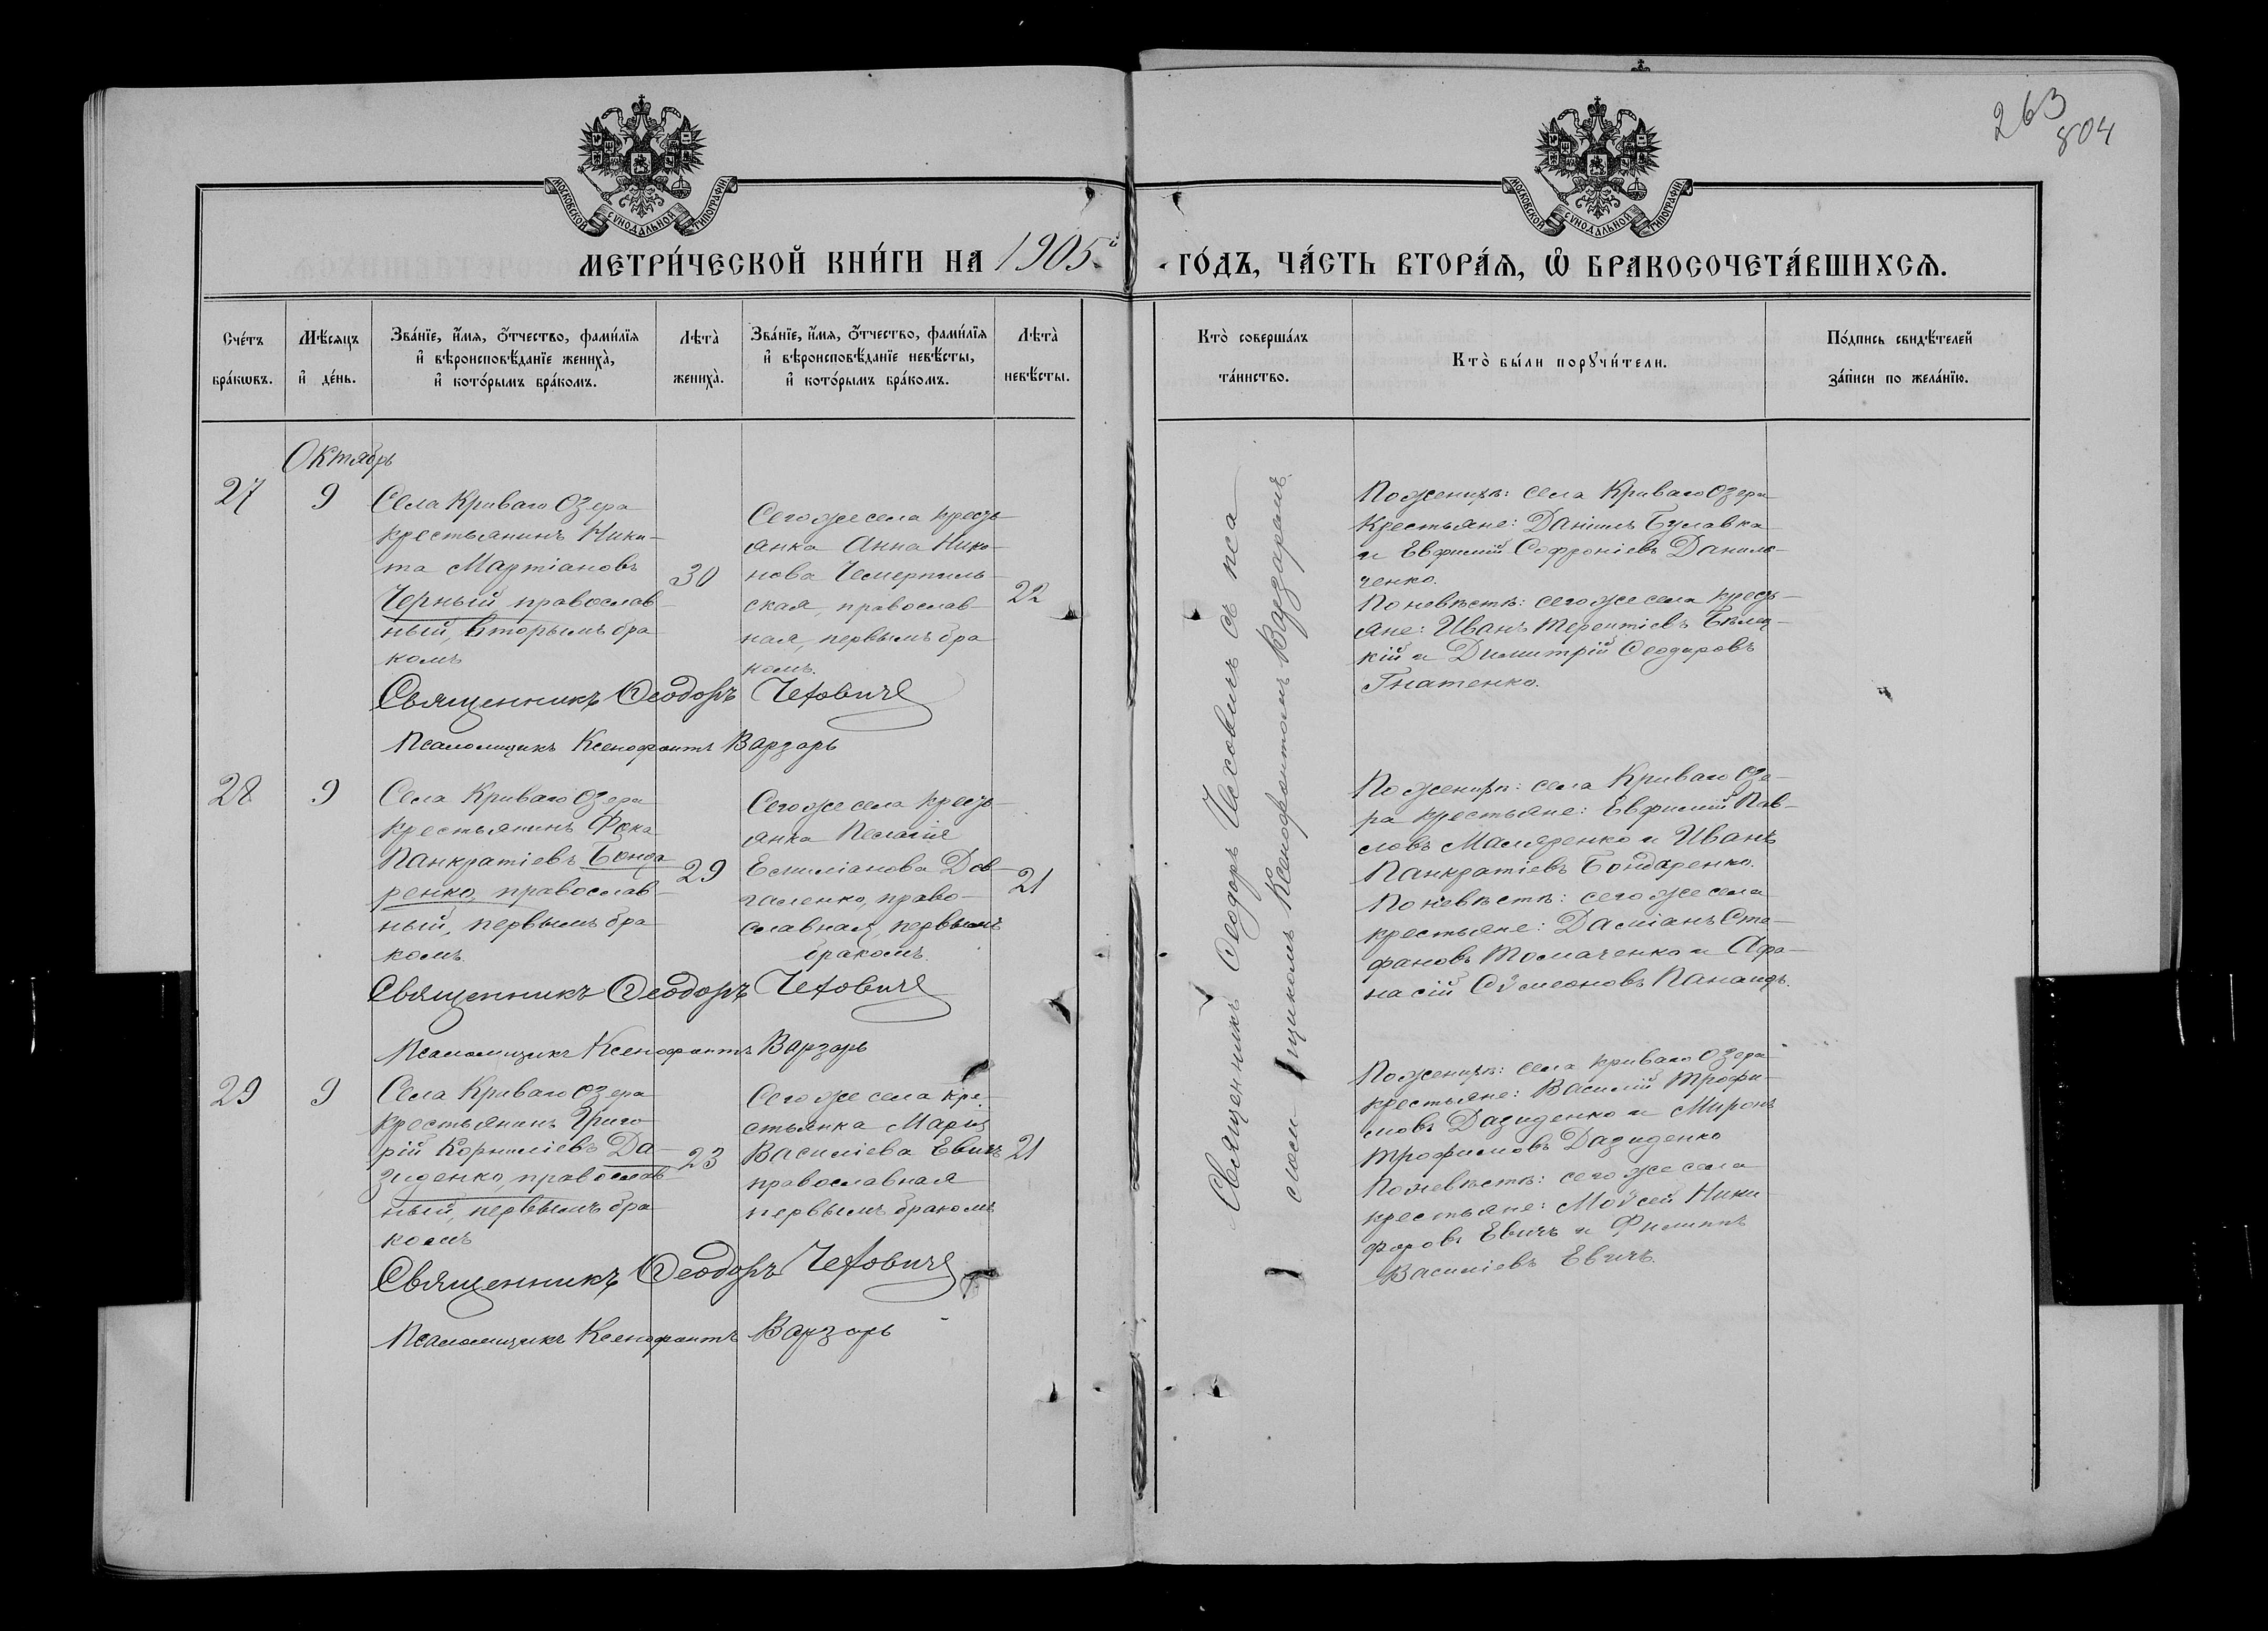 263
804
МОСКОВСКОЙ СѴНОДАЛЬНОЙ ТИПОГРАФІИ
МОСКОВСКОЙ СѴНОДАЛЬНОЙ ТИПОГРАФІИ
МЕТРИ́ЧЕСКОЙ КНИ́ГИ НА 1905й ГО́ДЪ, ЧА́СТЬ ВТОРА́Ѧ, Ѡ҆ БРАКОСОЧЕТА́ВШИХСѦ.
Сче́тъ
бра́кѡвъ.
Мѣ́сяцъ
и҆ де́нь.
Зва́нїе, и҆́мя, ѻ҆́тчество, фами́лїя
и҆ вѣроисповѣ́данїе жениха̀,
и҆ кото́рымъ бра́комъ.
Лѣта̀
жениха̀.
Зва́нїе, и҆́мя, ѻ҆́тчество, фами́лїя
и҆ вѣроисповѣ́данїе невѣ́сты,
и҆ кото́рымъ бра́комъ.
Лѣта̀
невѣ́сты.
Кто̀ соверша́лъ
та́инство.
Кто̀ бы́ли порꙋчи́тели.
По́дпись свидѣ́телей
за́писи по жела́нїю.
Октябрь
27
9
Села Криваго Озера
крестьянинъ Ники-
та Мартіановъ
Черный, православ-
ный, вторымъ бра
комъ
30
Сего же села кресть-
янка Анна Нико-
нова Чемерпиль-
ская, православ-
ная, первымъ бра
комъ.
22
Священникъ Ѳеодоръ Чеховичъ
Псаломщикъ Ксенофонтъ Варзарь
По женихѣ: села Криваго Озера
крестьяне: Даніилъ Булавка
и Евфимій Софроніевъ Данил-
ченко.
По невѣстѣ: сего же села кресть-
яне: Иванъ Терентіевъ Бѣлец-
кій и Димитрій Ѳеодоровъ
Гнатенко.
28
9
Села Криваго Озера
крестьянинъ Фока
Панкратіевъ Бонда
ренко, православ-
ный, первымъ бра
комъ.
29
Сего же села кресть-
янка Пелагія
Емиліанова Дов-
галенко, право-
славная, первымъ
бракомъ.
21
Священникъ Ѳеодоръ Чеховичъ
Псаломщикъ Ксенофонтъ Варзарь
По женихѣ: села Криваго Озе-
ра крестьяне: Евфимій Пав-
ловъ Маляренко и Иванъ
Панкратіевъ Бондаренко.
По невѣстѣ: сего же села
крестьяне: Даміанъ Сте-
фановъ Томаченко и Афа-
насій Сѵмеоновъ
29
9
Села Криваго Озера
крестьянинъ Григо
рій Корниліевъ Да-
зиденко, православ
ный, первымъ бра
комъ
23
Сего же села кре-
стьянка Марія
Василіева Евичъ
православная
первымъ бракомъ
21
Священникъ Ѳеодоръ Чеховичъ
Псаломщикъ Ксенофонтъ Варзарь
По женихѣ: села Криваго Озера
крестьяне: Василій Трофи-
мовъ Дазиденко и Миронъ
Трофимовъ Дазиденко
По невѣстѣ: сего же села
крестьяне: Моѵсей Ники
форовъ Евичъ и Филиппъ
Василіевъ Евичъ.
Священникъ Ѳеодоръ Чеховичъ съ пса
ломщикомъ Ксенофонтомъ Варзаремъ.